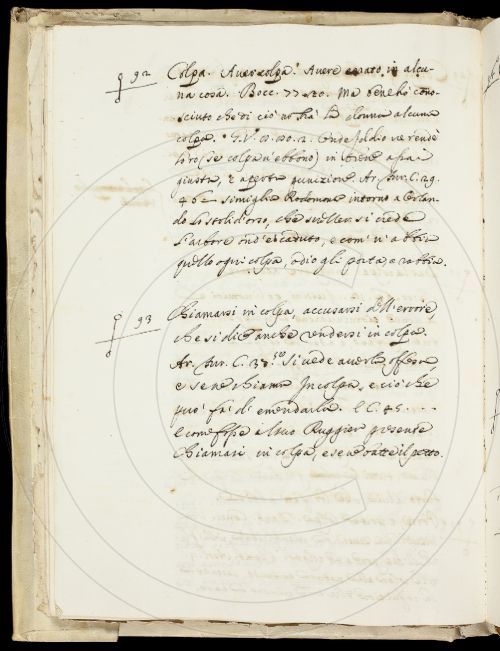 92
Colpa. Aver colpa. Avere errato in alcu-
na cosa. Bocc. 77. 20. Ma bene ho cono-
sciuto che di ciò non ha la donna alcuna
colpa. G.V. Onde Iddio ne rendè
loro (se colpa n'ebbono) in brieve assai
giusta, e aperta punizione. Ar. Fur. C. 29.
simiglia Rodomonte intorno a Orlan-
do lo stolid'orso, che sveller si crede
L'arbore ond'è caduto, e come n'abbia
quello ogni colpa, odio gli porta, e rabbia.
93
Chiamarsi in colpa, accusarsi dell'errore,
che si dice anche rendersi in colpa.
Ar. Fur. C. 38. Si vede averla offesa,
e se ne chiama In colpa, e ciò che
può fa di emendarla. E C. 45.
E come fosse il suo Ruggier presente
Chiamasi in colpa, e se ne batte il petto.